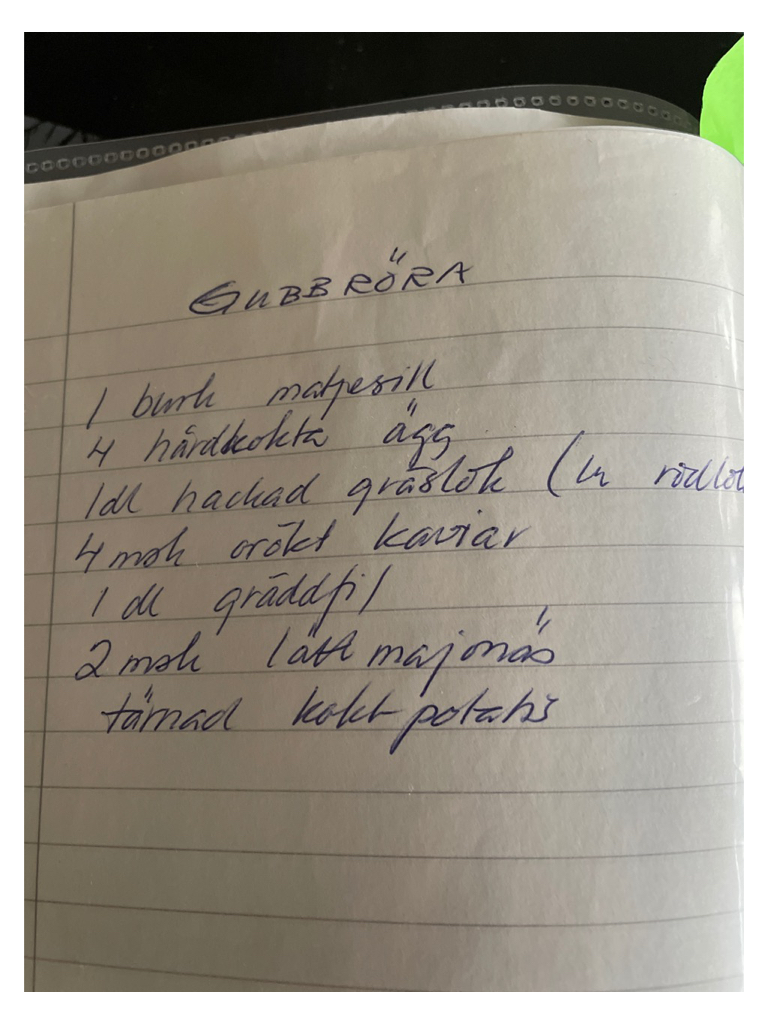 GUBBRÖRA
1 burk matjesill
4 hårdkokta ägg
1 dl hackad gräslök ( rödlök
4 msk orökt kaviar
1 dl gräddfil
2 msk lätt majonäs
tärnad kokt potatis